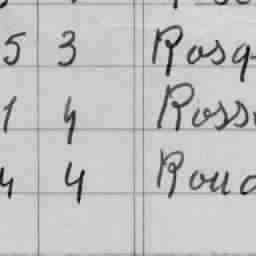 5 3 Rosq
1 4 Ross
4 4 Roud